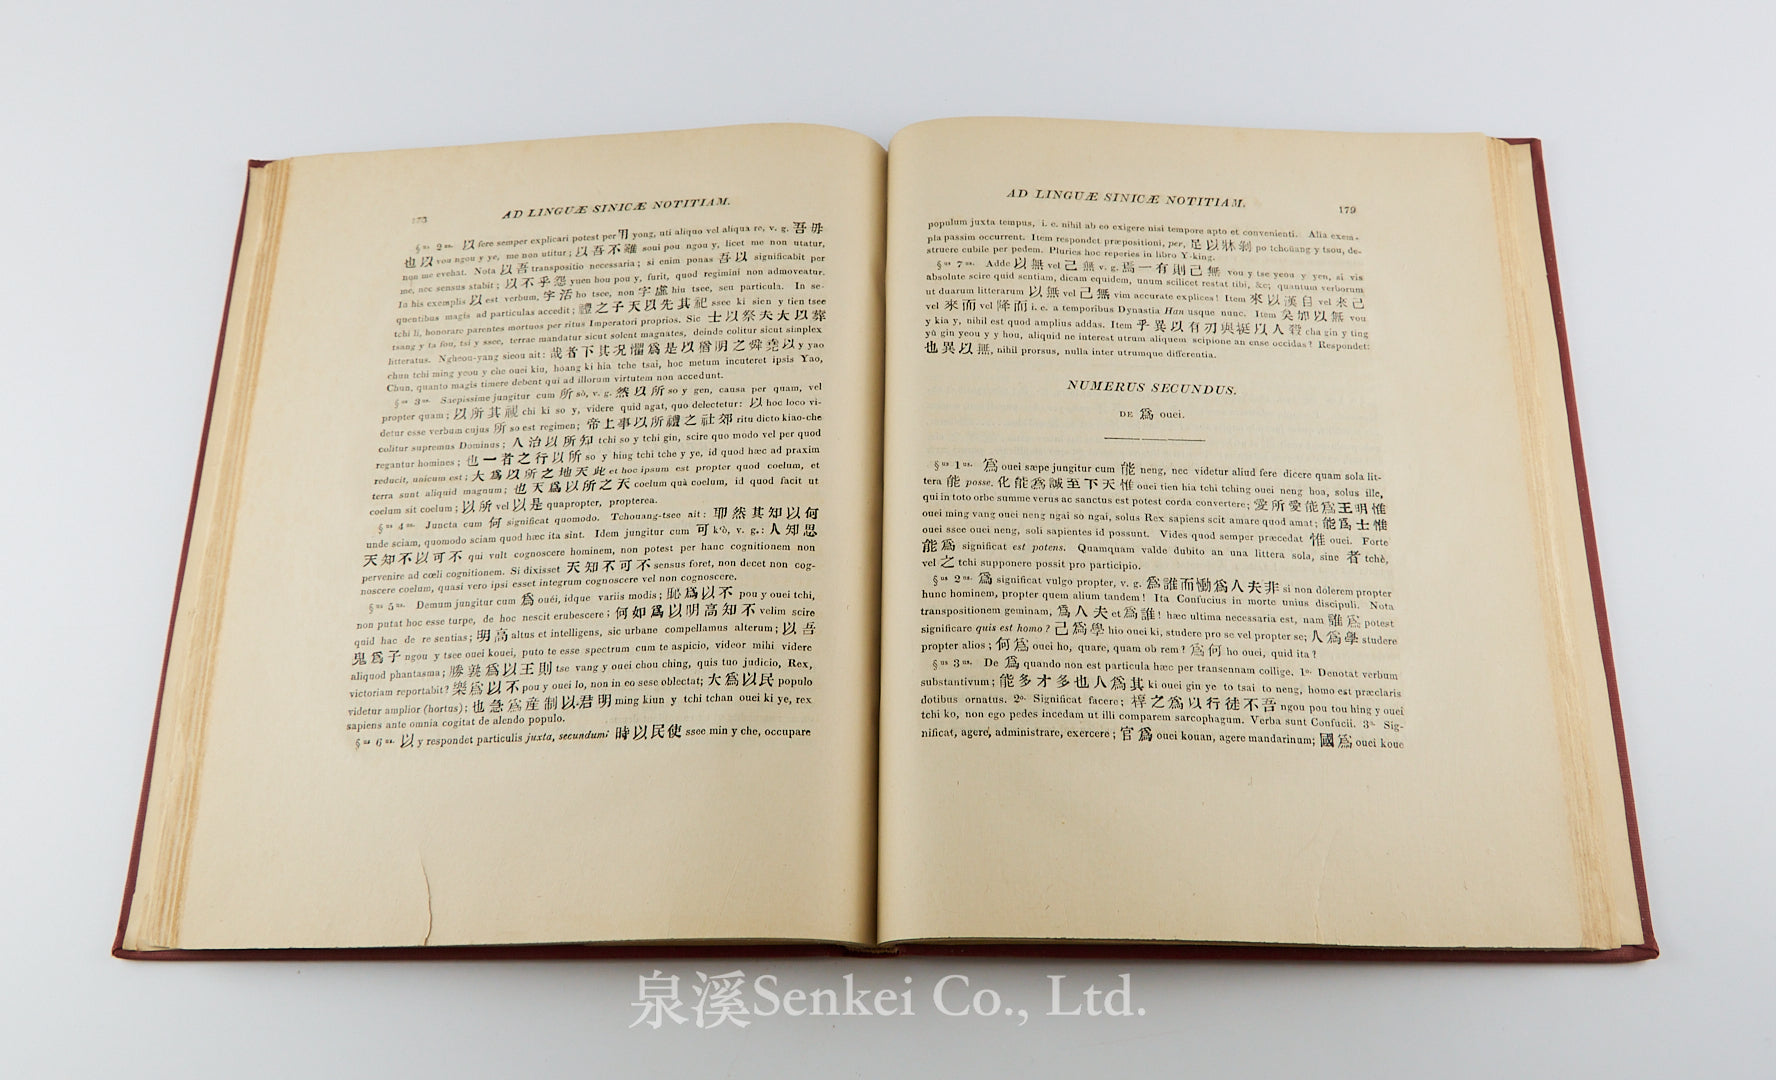 178
AD LINGUÆ SINICÆ NOTITIAM.
§ us 2 us. 以 fere semper explicari potest per 用 yong, uti aliquo vel aliqua re, v. g. 吾毋
也以 vou ngou y ye, me non utitur; 以吾不雖 soui pou ngou y, licet me non utatur,
non me evehat. Nota 以吾 transpositio necessaria; si enim ponas 吾以 significabit per
me, nec sensus stabit; 以不乎怨 yuen hou pou y, furit, quod regimini non admoveatur.
In his exemplis 以 est verbum, 字活 ho tsee, non 字虛 hiu tsee, seu particula. In se-
quentibus magis ad particulas accedit; 禮之子天以先其祀 ssee ki sien y tien tsee
tchi li, honorare parentes mortuos per ritus Imperatori proprios. Sic 士以祭夫大以葬
tsang y ta fou, tsi y ssee, terrae mandatur sicut solent magnates, deinde colitur sicut simplex
litteratus. Ngheou-yang sieou ait: 哉者下其况懼爲是以猶明之舜堯以 y yao
chun tchi ming yeou y che ouei kiu, hoang ki hia tche tsai, hoc metum incuteret ipsis Yao,
Chun, quanto magis timere debent qui ad illorum virtutem non accedunt.
§ us 3 us. Saepissime jungitur cum 所 sò, v. g. 然以所 so y gen, causa per quam, vel
propter quam; 以所其視 chi ki so y, videre quid agat, quo delectetur: 以 hoc loco vi-
detur esse verbum cujus 所 so est regimen; 帝上事以所禮之社郊 ritu dicto kiao-che
colitur supremus Dominus; 人治以所知 tchi so y tchi gin, scire quo modo vel per quod
regantur homines; 也一者之行以所 so y hing tchi tche y ye, id quod hæc ad praxim
reducit, unicum est; 大爲以所之地天此 et hoc ipsum est propter quod coelum, et
terra sunt aliquid magnum; 也天爲以所之天 coelum quà coelum, id quod facit ut
coelum sit coelum; 以所 vel 以是 quapropter, propterea.
§ us 4 us. Juncta cum 何 significat quomodo. Tchouang-tsee ait: 耶然其知以何
unde sciam, quomodo sciam quod hæc ita sint. Idem jungitur cum 可 k'ò, v. g.: 人知思
天知不以可不 qui vult cognoscere hominem, non potest per hanc cognitionem non
pervenire ad cœli cognitionem. Si dixisset 天知不可不 sensus foret, non decet non cog-
noscere coelum, quasi vero ipsi esset integrum cognoscere vel non cognoscere.
§ us 5 us. Demum jungitur cum 爲 ouéi, idque variis modis; 恥爲以不 pou y ouei tchi,
non putat hoc esse turpe, de hoc nescit erubescere; 何如爲以明高知不 velim scire
quid hac de re sentias; 明高 altus et intelligens, sic urbane compellamus alterum; 以吾
鬼爲子 ngou y tsee ouei kouei, puto te esse spectrum cum te aspicio, videor mihi videre
aliquod phantasma; 勝孰爲以王則 tse vang y ouei chou ching, quis tuo judicio, Rex,
victoriam reportabit? 樂爲以不 pou y ouei lo, non in eo sese oblectat; 大爲以民 populo
videtur amplior (hortus); 也急爲産制以君明 ming kiun y tchi tchan ouei ki ye, rex
sapiens ante omnia cogitat de alendo populo.
§ us 6 us. 以 y respondet particulis juxta, secundum: 時以民使 ssee min y che, occupare
AD LINGUÆ SINICÆ NOTITIAM.
179
populum juxta tempus, i. e. nihil ab eo exigere nisi tempore apto et convenienti. Alia exem-
pla passim occurrent. Item respondet præpositioni, per, 足以牀剝 po tchouang y tsou, de-
struere cubile per pedem. Pluries hoc reperies in libro Y-king.
§ us 7 us. Adde 以無 vel 已無 v. g. 焉一有則已無 vou y tse yeou y yen, si vis
absolute scire quid sentiam, dicam equidem, unum scilicet restat tibi, &c; quantum verborum
ut duarum litterarum 以無 vel 已無 vim accurate explices! Item 來以漢自 vel 來已
vel 來而 vel 降而 i. e. a temporibus Dynastia Han usque nunc. Item 矣加以無 vou
y kia y, nihil est quod amplius addas. Item 乎異以有刃與挺以人殺 cha gin y ting
yù gin yeou y y hou, aliquid ne interest utrum aliquem scipione an ense occidas? Respondet:
也異以無, nihil prorsus, nulla inter utrumque differentia.
NUMERUS SECUNDUS.
DE 爲 ouei.
§ us 1 us. 爲 ouei sæpe jungitur cum 能 neng, nec videtur aliud fere dicere quam sola lit-
tera 能 posse. 化能爲誠至下天惟 ouei tien hia tchi tching ouei neng hoa, solus ille,
qui in toto orbe summe verus ac sanctus est potest corda convertere; 愛所愛能爲王明惟
ouei ming vang ouei neng ngai so ngai, solus Rex sapiens scit amare quod amat; 能爲士惟
ouei ssee ouei neng, soli sapientes id possunt. Vides quod semper præcedat 惟 ouei. Forte
能爲 significat est potens. Quamquam valde dubito an una littera sola, sine 者 tchè,
vel 之 tchi supponere possit pro participio.
§ us 2 us. 爲 significat vulgo propter, v. g. 爲誰而慟爲人夫非 si non dolerem propter
hunc hominem, propter quem alium tandem! Ita Confucius in morte unius discipuli. Nota
transpositionem geminam, 爲人夫 et 爲誰! hæc ultima necessaria est, nam 誰爲 potest
significare quis est homo? 己爲學 hio ouei ki, studere pro se vel propter se; 人爲學 studere
propter alios; 何爲 ouei ho, quare, quam ob rem? 爲何 ho ouei, quid ita?
§ us 3 us. De 爲 quando non est particula hæc per transennam collige. 1º. Denotat verbum
substantivum; 能多才多也人爲其 ki ouei gin ye to tsai to neng, homo est præclaris
dotibus ornatus. 2º. Significat facere; 椁之爲以行徒不吾 ngou pou tou hing y ouei
tchi ko, non ego pedes incedam ut illi comparem sarcophagum. Verba sunt Confucii. 3º. Sig-
nificat, agere, administrare, exercere; 官爲 ouei kouan, agere mandarinum; 國爲 ouei koue
泉溪Senkei Co., Ltd.